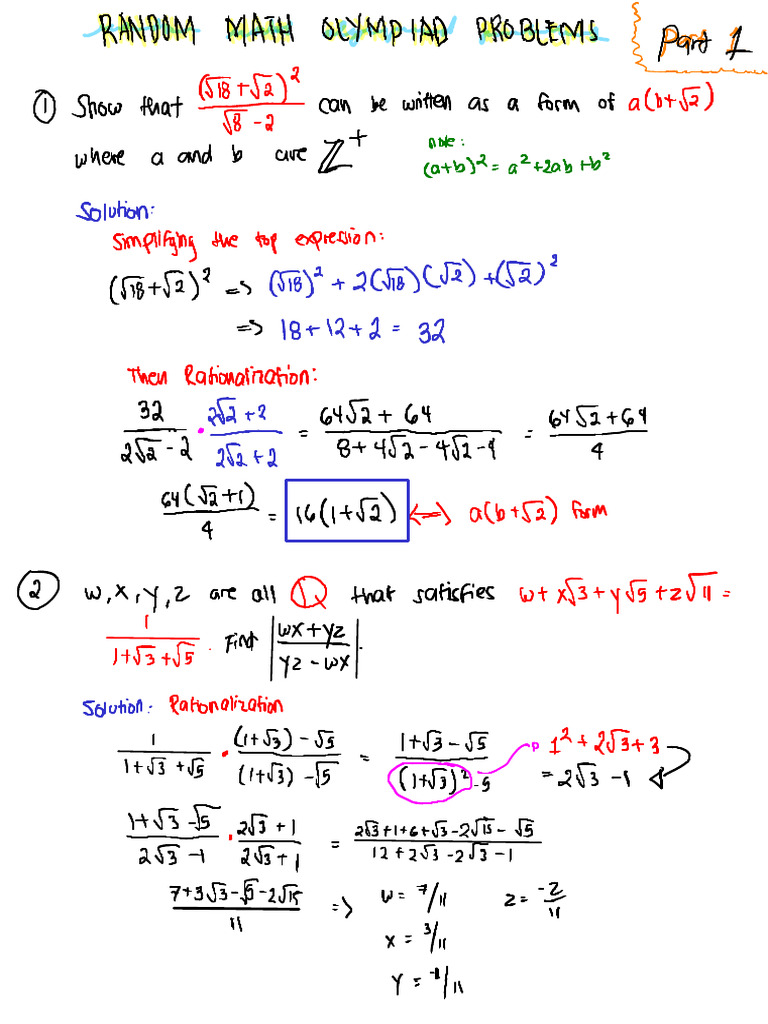 RANDOM MATH OLYMPIAD PROBLEMS
Part 1
① Show that (√18+√2)²/(√8-2) can be written as a form of a(b+√2)
where a and b are ℤ⁺
note:
(a+b)² = a²+2ab+b²
Solution:
Simplifying the top expression:
(√18+√2)² => (√18)² + 2(√18)(√2) + (√2)²
=> 18+12+2 = 32
Then Rationalization:
32/(2√2-2) · (2√2+2)/(2√2+2) = (64√2+64)/(8+4√2-4√2-4) = (64√2+64)/4
64(√2+1)/4 = 16(1+√2) <=> a(b+√2) form
② w,x,y,z are all ℚ that satisfies w+x√3+y√5+z√11 =
1/(1+√3+√5). Find |(wx+yz)/(yz-wx)|.
Solution: Rationalization
1/(1+√3+√5) · ((1+√3)-√5)/((1+√3)-√5) = (1+√3-√5)/((1+√3)²-5) 1²+2√3+3
= 2√3-1
(1+√3-√5)/(2√3-1) · (2√3+1)/(2√3+1) = (2√3+1+6+√3-2√15-√5)/(12+2√3-2√3-1)
(7+3√3-√5-2√15)/11 => w = 7/11 z = -2/11
x = 3/11
y = -1/11